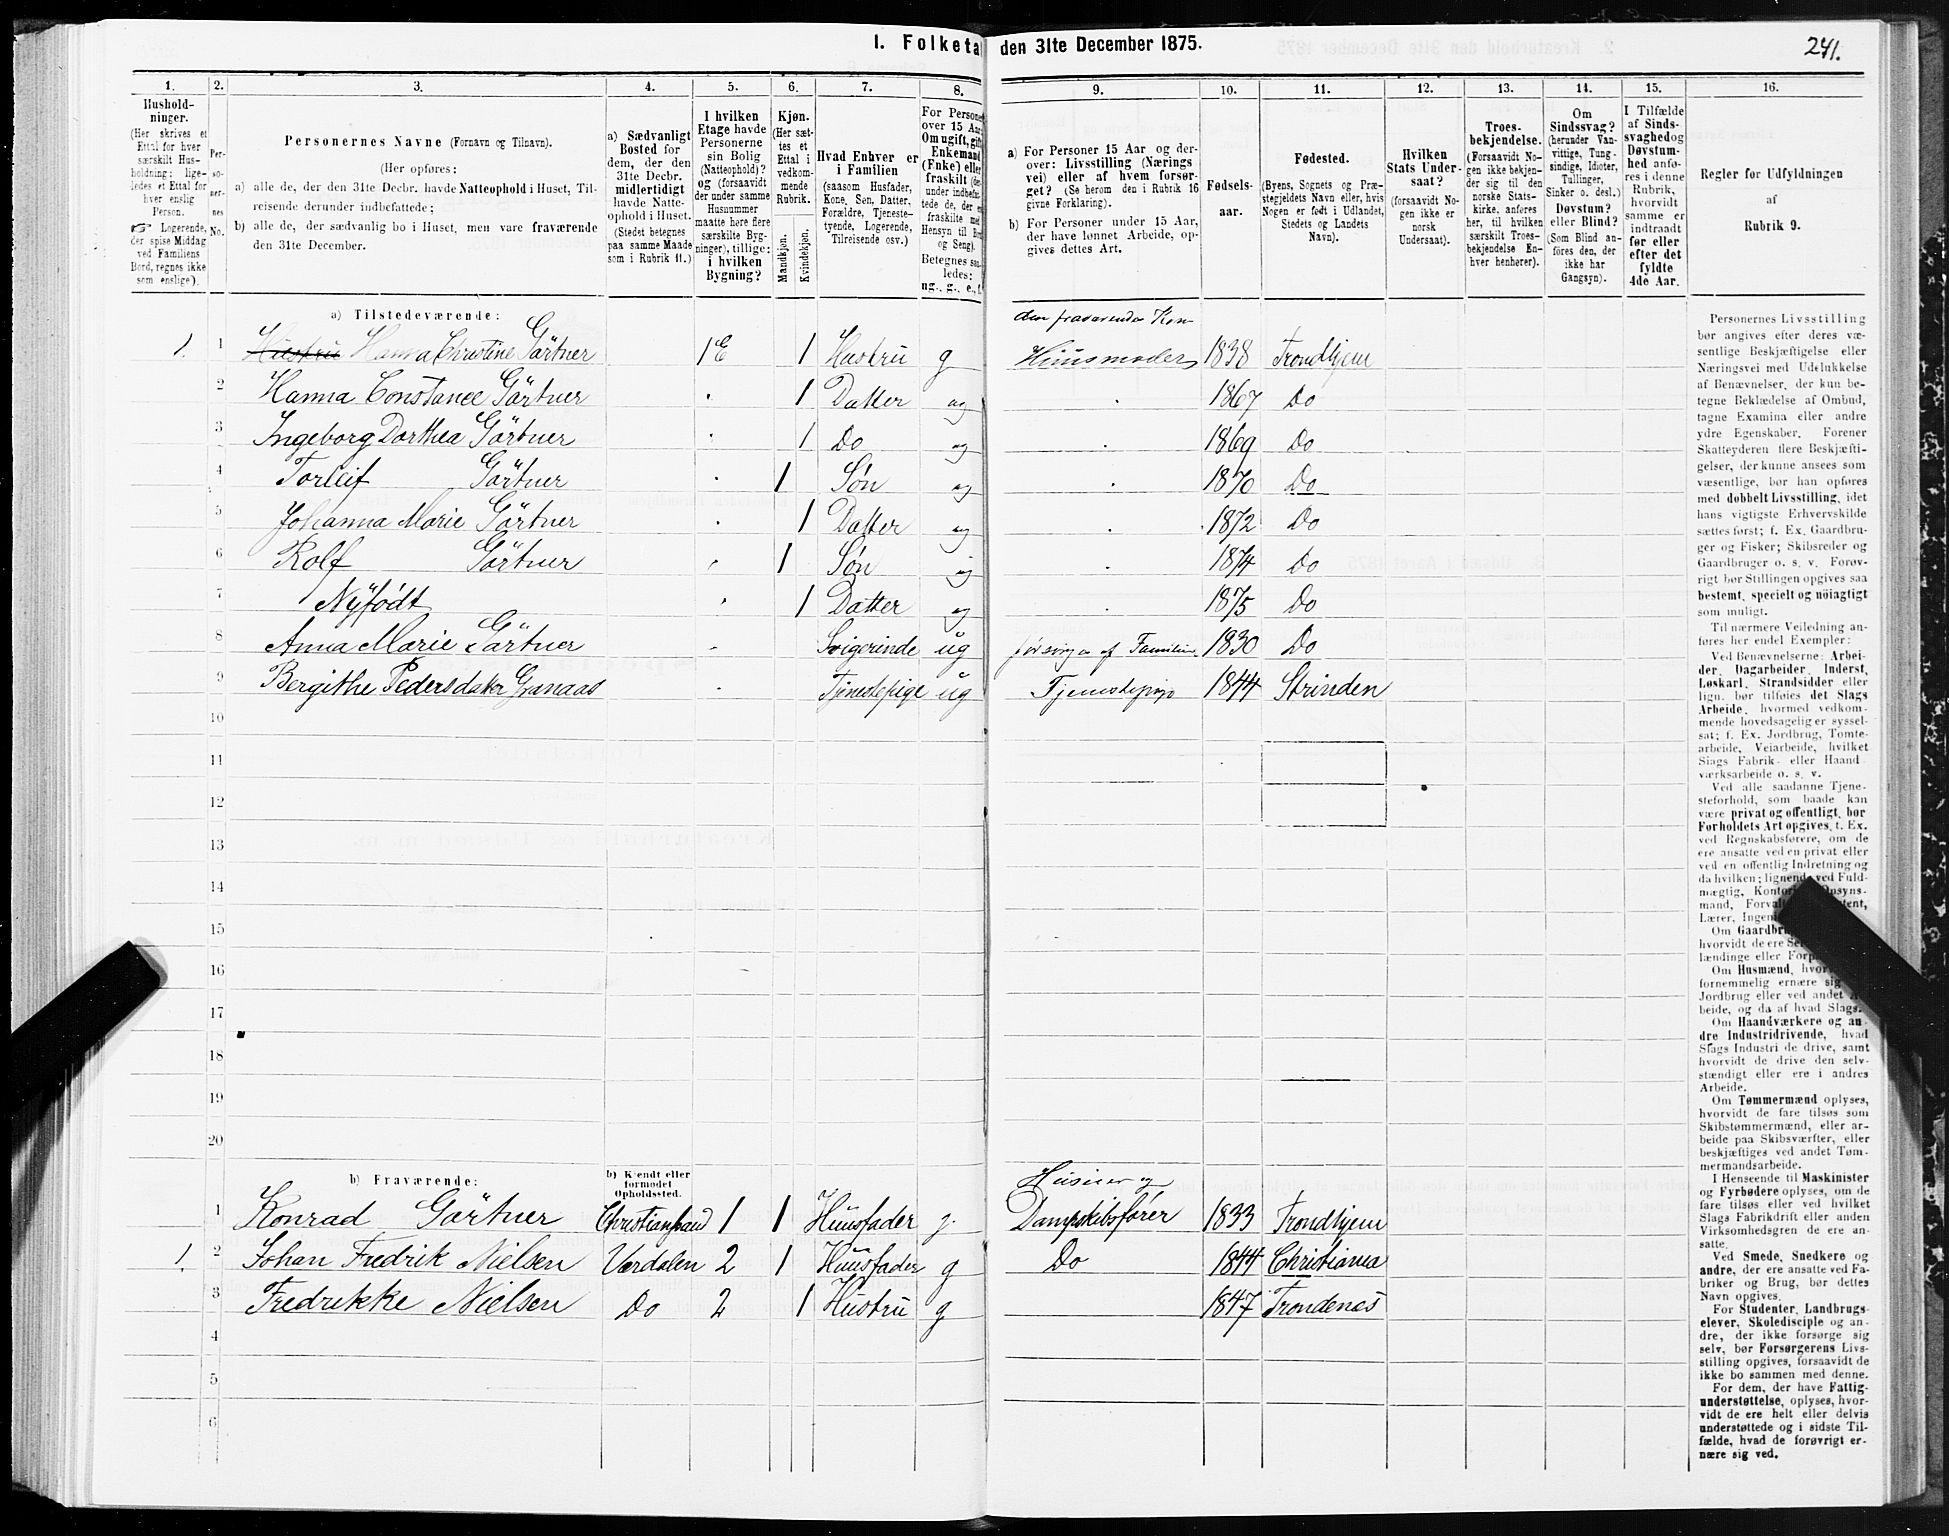 I. Folketa den 31te December 1875.
241.
1.
Hushold-
ninger.
(Her skrives et
Ettal for hver
særskilt Hus-
holdning; lige-
ledes et Ettal for
hver enslig
Person.
☞ Logerende,
der spise Middag
ved Familiens
Bord, regnes ikke
som enslige).
2.
Per-
so-
ner-
nes
No.
3.
Personernes Navne (Fornavn og Tilnavn).
(Her opføres:
a) alle de, der den 31te Decbr. havde Natteophold i Huset, Til-
reisende derunder indbefattede;
b) alle de, der sædvanlig bo i Huset, men vare fraværende
den 31te December.
4.
a) Sædvanligt
Bosted for
dem, der den
31te Decbr.
midlertidigt
havde Natte-
ophold i Huset.
(Stedet betegnes
paa samme Maade
som i Rubrik 11.)
5.
I hvilken
Etage havde
Personerne
sin Bolig
(Natteophold)?
og (forsaavidt
der under samme
Husnummer
maatte høre flere
særskilte Byg-
ninger), tillige:
i hvilken
Bygning?
6.
Kjøn.
(Her sæt-
tes et
Ettal i
vedkom-
mende
Rubrik.
Mandkjøn.
Kvindekjøn.
7.
Hvad Enhver er
i Familien
(saasom Husfader,
Kone, Søn, Datter,
Forældre, Tjeneste-
tyende, Logerende,
Tilreisende osv.)
8.
For Persone
over 15 Aar:
Om ugift, gift,
Enkemand
(Enke) eller
fraskilt (de
under indbefat-
tede de, der e
fraskilte med
Hensyn til Bord
og Seng).
Betegnes saa-
ledes:
ug., g., e., f.
9.
a) For Personer 15 Aar og der-
over: Livsstilling (Nærings
vei) eller af hvem forsør-
get? (Se herom den i Rubrik 16
givne Forklaring).
b) For Personer under 15 Aar,
der have lønnet Arbeide, op-
gives dettes Art.
10.
Fødsels-
aar.
11.
Fødested.
(Byens, Sognets og Præ-
stegjeldets Navn eller, hvis
Nogen er født i Udlandet,
Stedets og Landets
Navn).
12.
Hvilken
Stats Under-
saat?
(forsaavidt No-
gen ikke er
norsk
Undersaat).
13.
Troes-
bekjendelse.
(Forsaavidt No-
gen ikke bekjen-
der sig til den
norske Stats-
kirke, anføres
her, til hvilken
særskilt Troes-
bekjendelse En-
hver henhører).
14.
Om
Sindssvag?
(herunder Van-
vittige, Tung-
sindige, Idioter,
Tullinger,
Sinker o. desl.)
Døvstum?
eller Blind?
(Som Blind an-
føres den, der
ikke har
Gangsyn).
15.
I Tilfælde
af Sinds-
svaghed og
Døvstum-
hed anfø-
res i denne
Rubrik,
hvorvidt
samme er
indtraadt
før eller
efter det
fyldte
4de Aar.
16.
Regler for Udfyldningen
af
Rubrik 9.
a) Tilstedeværende:
den fraværendes Kon-
1. 1 Hustru Hanna Christine Gärtner 1 E 1 Hustru g Huusmoder 1838 Trondhjem
2 Hanna Constance Gärtner " 1 Datter ug " 1867 Do
3 Ingeborg Dorthea Gärtner " 1 Do ug " 1869 Do
4 Torleif Gärtner " 1 Søn ug " 1870 Do
5 Johanna Marie Gärtner " 1 Datter ug " 1872 Do
6 Rolf Gärtner " 1 Søn ug " 1874 Do
7 Nyfødt " 1 Datter ug " 1875 Do
8 Anna Marie Gärtner " Svigerinde ug forsörges af Familien 1830 Do
9 Bergithe Pedersdatter Granaas " Tjenestepige ug Tjenestepige 1844 Strinden
10
11
12
13
14
15
16
17
18
19
20
b) Fraværende:
b) Kjendt eller
formodet
Opholdssted.
Huseier og
1 Konrad Gärtner Christianssund 1 1 Huusfader g. Dampskibsfører 1833 Trondhjem
1. 2 Johan Fredrik Nielsen Værdalen 2 1 Huusfader g Do 1844 Christiania
3 Fredrikke Nielsen Do 2 1 Hustru g 1847 Trondenæs
4
5
6
Personernes Livsstilling
bør angives efter deres væ-
sentlige Beskjæftigelse eller
Næringsvei med Udelukkelse
af Benævnelser, der kun be-
tegne Beklædelse af Ombud,
tagne Examina eller andre
ydre Egenskaber. Forener
Skatteyderen flere Beskjæfti-
gelser, der kunne ansees som
væsentlige, bør han opføres
med dobbelt Livsstilling, idet
hans vigtigste Erhvervskilde
sættes først; f. Ex. Gaardbru-
ger og Fisker; Skibsreder og
Gaardbruger o. s. v. Forøv-
rigt bør Stillingen opgives saa
bestemt, specielt og nöiagtigt
som muligt.
Til nærmere Veiledning an-
føres her endel Exempler:
Ved Benævnelserne: Arbei-
der, Dagarbeider, Inderst,
Løskarl, Strandsidder eller
lign. bør tilføies det Slags
Arbeide, hvormed vedkom-
mende hovedsagelig er syssel-
sat; f. Ex. Jordbrug, Tomte-
arbeide, Veiarbeide, hvilket
Slags Fabrik- eller Haand-
værksarbeide o. s. v.
Ved alle saadanne Tjene-
steforhold, som baade kan
være privat og offentligt, bør
Forholdets Art opgives, f. Ex.
ved Regnskabsførere, om de
ere ansatte ved en privat eller
ved en offentlig Indretning og
da hvilken; lignende ved Fuld-
mægtig, Kontorist, Opsyns-
mand, Forval tent,
Lærer, Ingen
Om Gaardbru
hvorvidt de ere Sel
lændinge eller Forp
Om Husmænd, hvor
fornemmelig ernære sig
Jordbrug eller ved andet Ar-
beide, og da af hvad Slags.
Om Haandværkere og an-
dre Industridrivende, hvad
Slags Industri de drive, samt
hvorvidt de drive den selv-
stændigt eller ere i andres
Arbeide.
Om Tømmermænd oplyses,
hvorvidt de fare tilsøs som
Skibstømmermænd, eller ar-
beide paa Skibsværfter, eller
beskjæftiges ved andet Tøm-
mermandsarbeide.
I Henseende til Maskinister
og Fyrbødere oplyses, om de
fare tilsøs eller ved hvilket
Slags Fabrikdrift eller anden
Virksomhedsgren de ere an-
satte.
Ved Smede, Snedkere og
andre, der ere ansatte ved Fa-
briker og Brug, bør dettes
Navn opgives.
For Studenter, Landbrugs-
elever, Skoledisciple og an-
dre, der ikke forsørge sig
selv, bør Forsørgerens Livs-
stilling opgives, forsaavidt de
ikke bo sammen med denne.
For dem, der have Fattig-
understøttelse, oplyses, hvor-
vidt de ere helt eller delvis
understøttede og i sidste Til-
fælde, hvad de forøvrigt er-
nære sig ved.